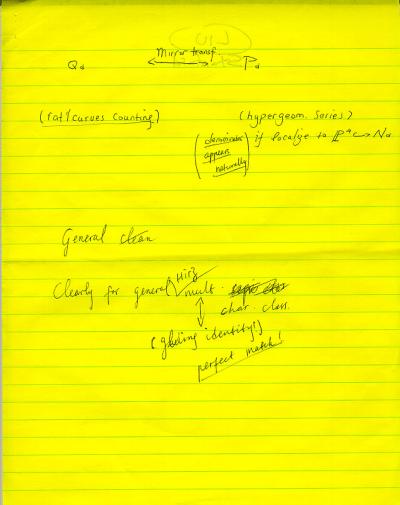 Mirror transf.
Q_d ⟷ P_d
(rat'l curves counting) (hypergeom. series)
(denominator appears naturally) if localize to P^n ↪ N_d
General
Clearly for general Hirz mult.
char. class.
↕
(gluing identity!)
perfect match!